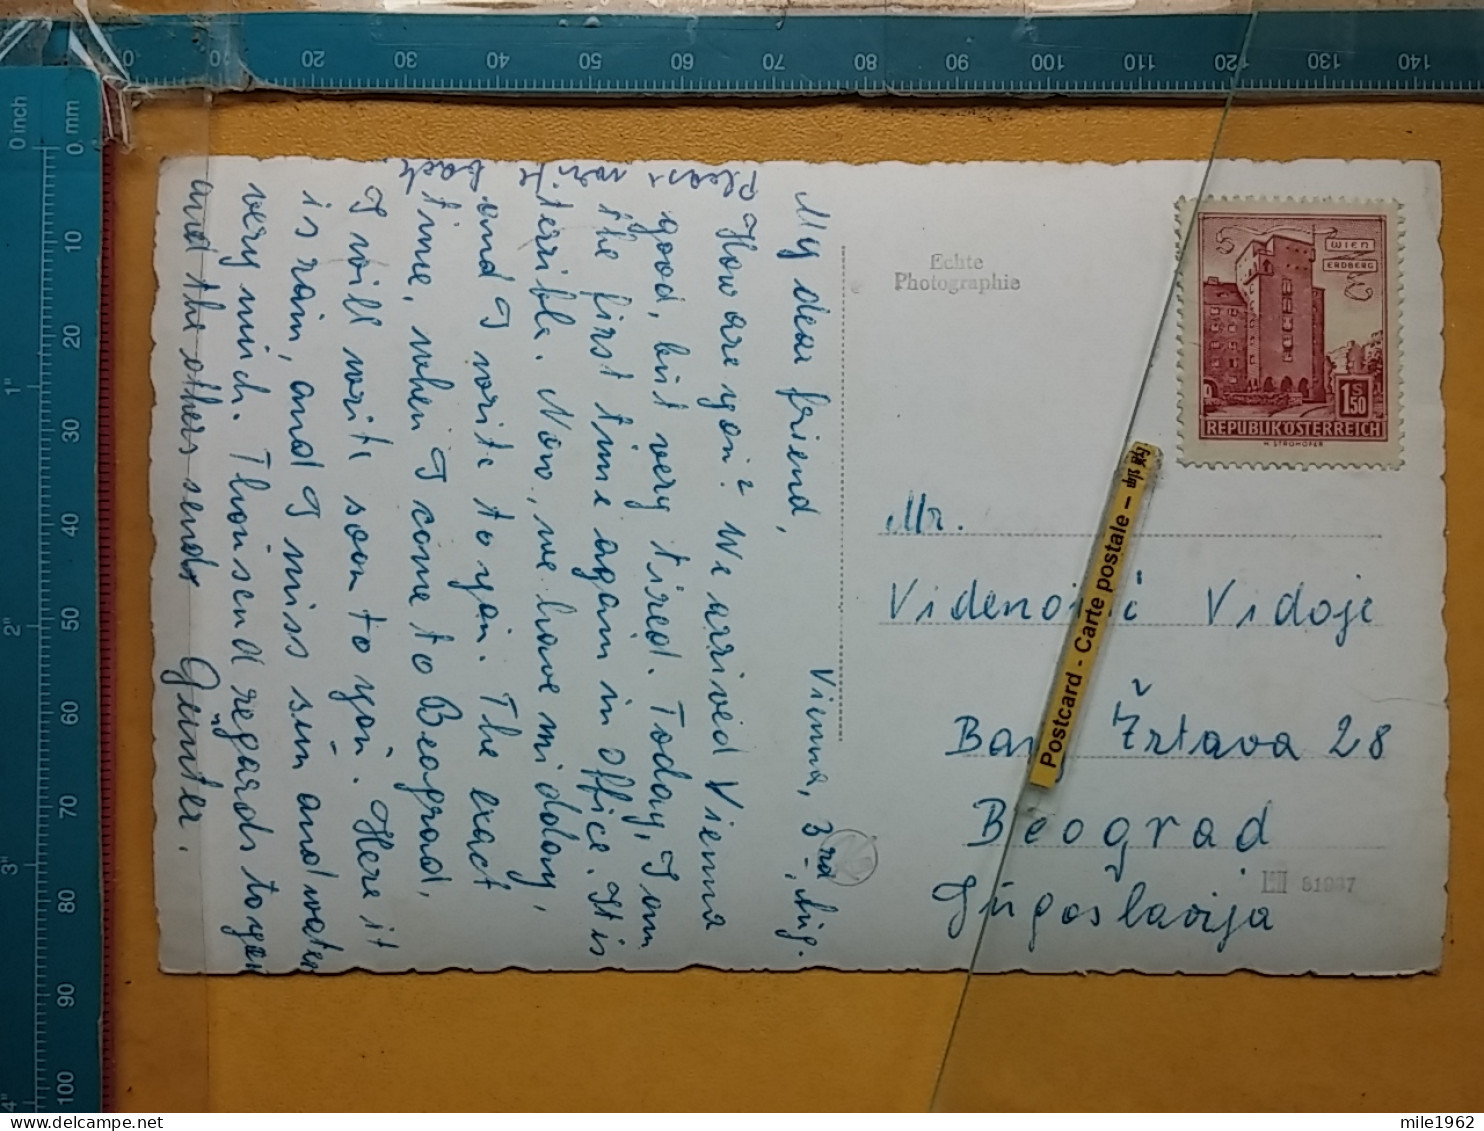 Vienna, 3rd, Aug.
My dear friend,
How are you? We arrived Vienna
good, but very tired. Today, I am
the first time again in office. It is
terrible. Now, we have midday,
and I write to you. The exact
time, when I come to Beograd,
I will write soon to you. Here it
is rain, and I miss sun and water
very much. Thousend regards to you
and the others sends Günter.
Please write
back
Echte
Photographie
WIEN
ERDBERG
1.50
REPUBLIK ÖSTERREICH
H. STROHOFER
Mr.
Vidoje
Žrtava 28
Beograd
Jugoslavija
Postcard - Carte postale -
0 inch
1"
2"
3"
4"
0 mm
10
20
30
40
50
60
70
80
90
100
10
20
30
40
50
60
70
80
90
100
110
120
130
140
mile1962